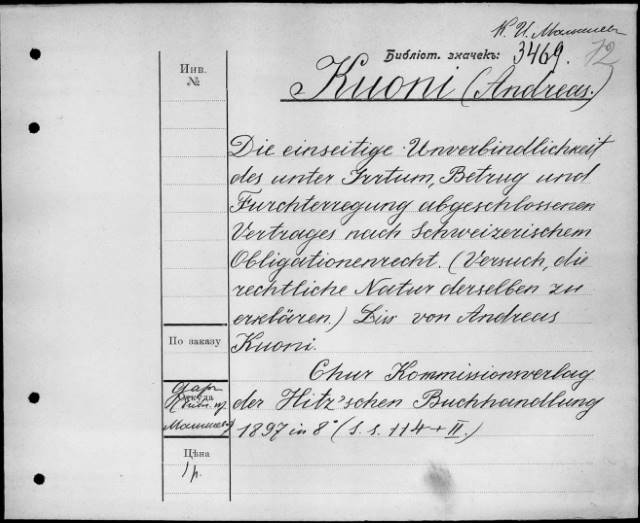 К. И. Малышев
Библіот. значекъ: 3469. 72
Kuoni (Andreas.)
Инв.
№
Die einseitige Unverbindlichkeit
des unter Irrtum, Betrug und
Furchterregung abgeschlossenen
Vertrages nach Schweizerischem
Obligationenrecht. (Versuch, die
rechtliche Natur derselben zu
erklären.) Diss von Andreas
Kuoni.
Chur Kommissionsverlag
der Hitz'schen Buchhandlung
1897 in 8° (S. s. 114 + II.)
По заказу
Даръ
Откуда
Малышева
Цѣна
1 р.